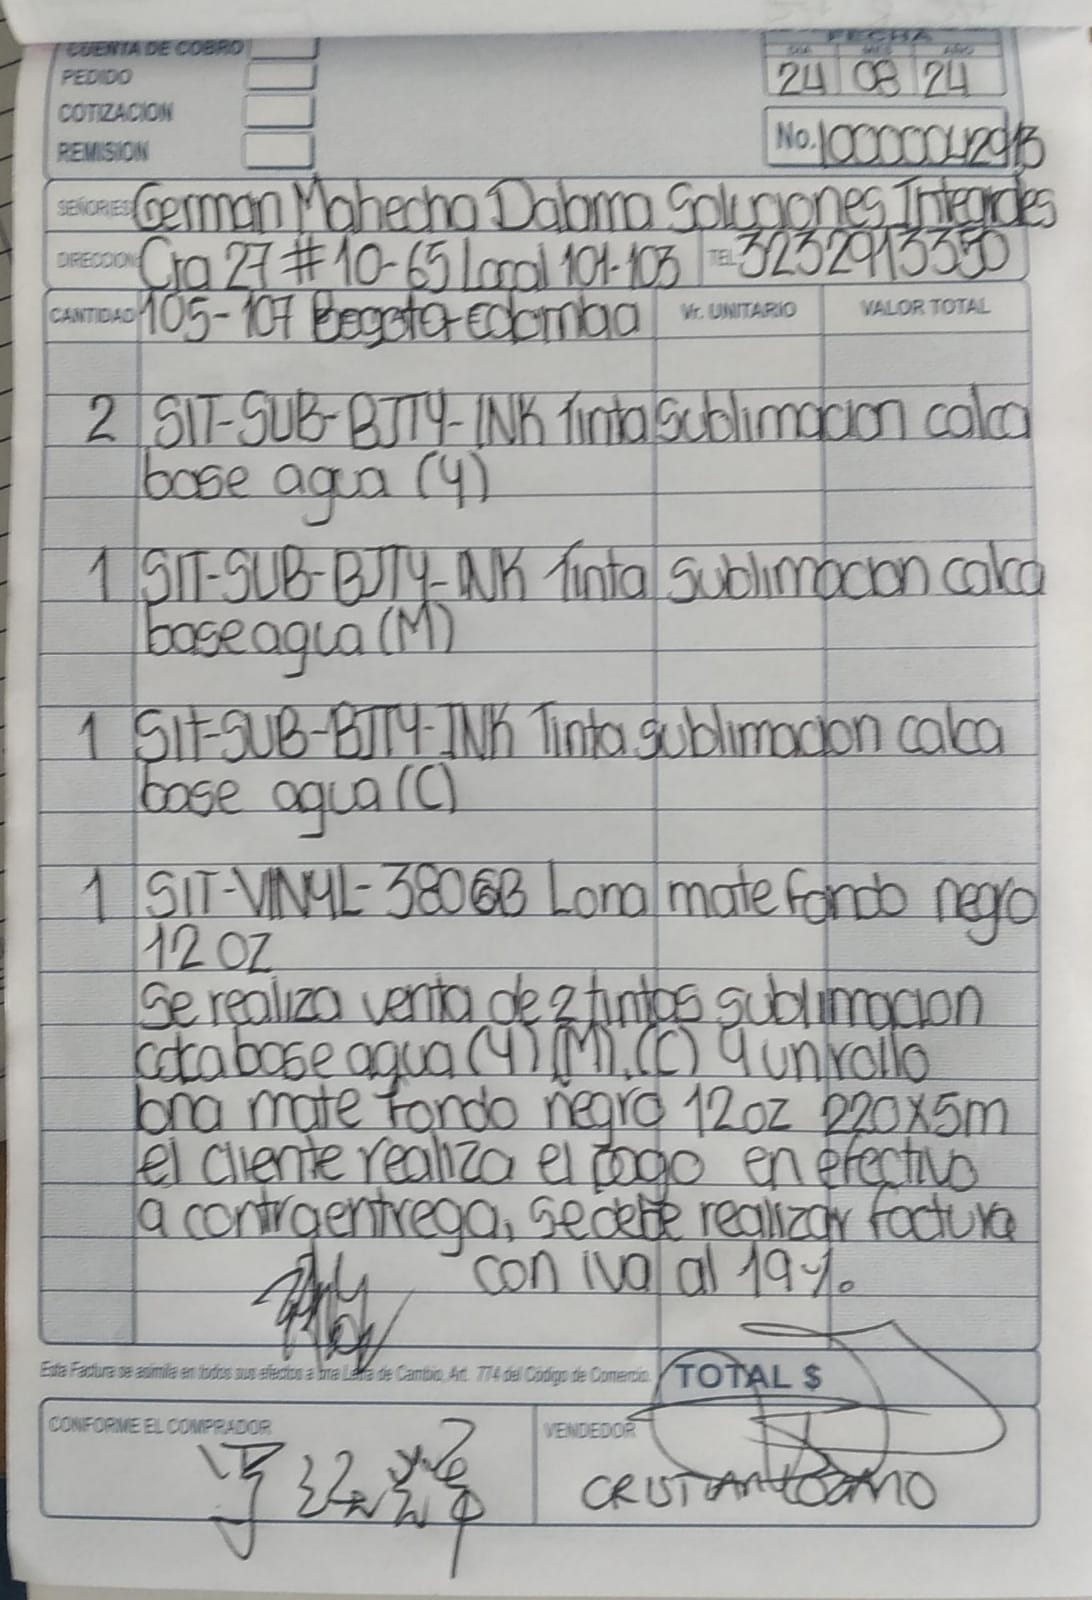 CUENTA DE COBRO
PEDIDO
COTIZACION
REMISION
FECHA
DIA MES AÑO
24 08 24
No.
SEÑOR(ES) German Mahecha Dabma Soluciones Integrales
DIRECCION Cra 27 # 10-65 Local 101-103 TEL 3232913350
CANTIDAD 105-107 Bogota-Colombia Vr. UNITARIO VALOR TOTAL
2 SIT-SUB-BJTY-INK Tinta sublimacion calca
base agua (Y)
1 SIT-SUB-BJTY-INK Tinta sublimacion calca
base agua (M)
1 SIT-SUB-BJTY-INK Tinta sublimacion calca
base agua (C)
1 SIT-VINYL-3806B Lona mate fondo negro
12 OZ
Se realiza venta de 2 tintas sublimacion
calca base agua (Y) (M), (C) y un rollo
lona mate fondo negro 12oz 220x5m
el cliente realiza el pago en efectivo
a contraentrega, se debe realizar factura
con iva al 19%.
Esta Factura se asimila en todos sus efectos a una Letra de Cambio, Art. 774 del Código de Comercio.
TOTAL $
CONFORME EL COMPRADOR
VENDEDOR
CRISTIAN LOZANO